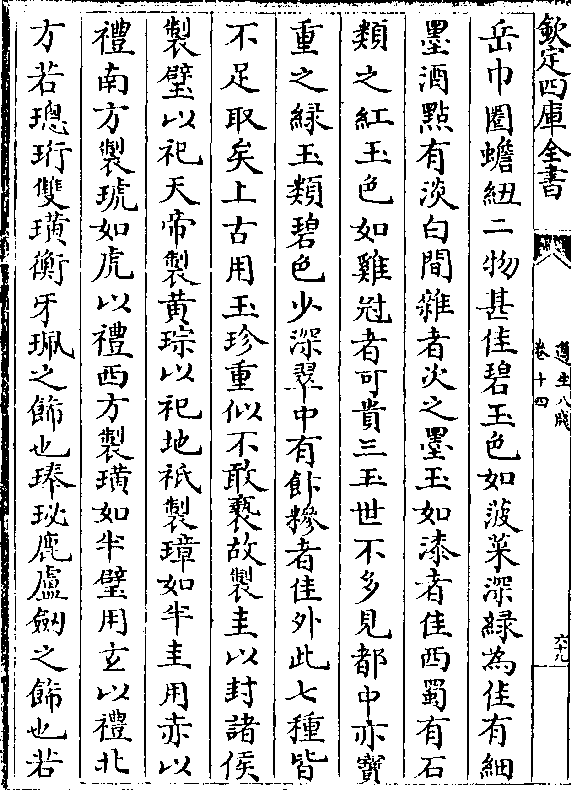 欽定四庫全書
遵生八牋
卷十四
六十九
岳巾圈蟾紐二物甚佳碧玉色如菠菜深緑為佳有細
墨洒㸃有淡白間雜者次之墨玉如漆者佳西蜀有石
類之紅玉色如雞冠者可貴三玉世不多見都中亦寳
重之緑玉類碧色少深翠中有飰糝者佳外此七種皆
不足取矣上古用玉珍重似不敢褻故製圭以封諸侯
製璧以祀天帝製黄琮以祀地祇製璋如半圭用赤以
禮南方製琥如虎以禮西方製璜如半璧用玄以禮北
方若璁珩雙璜衡牙珮之飾也琫珌鹿盧劒之飾也若